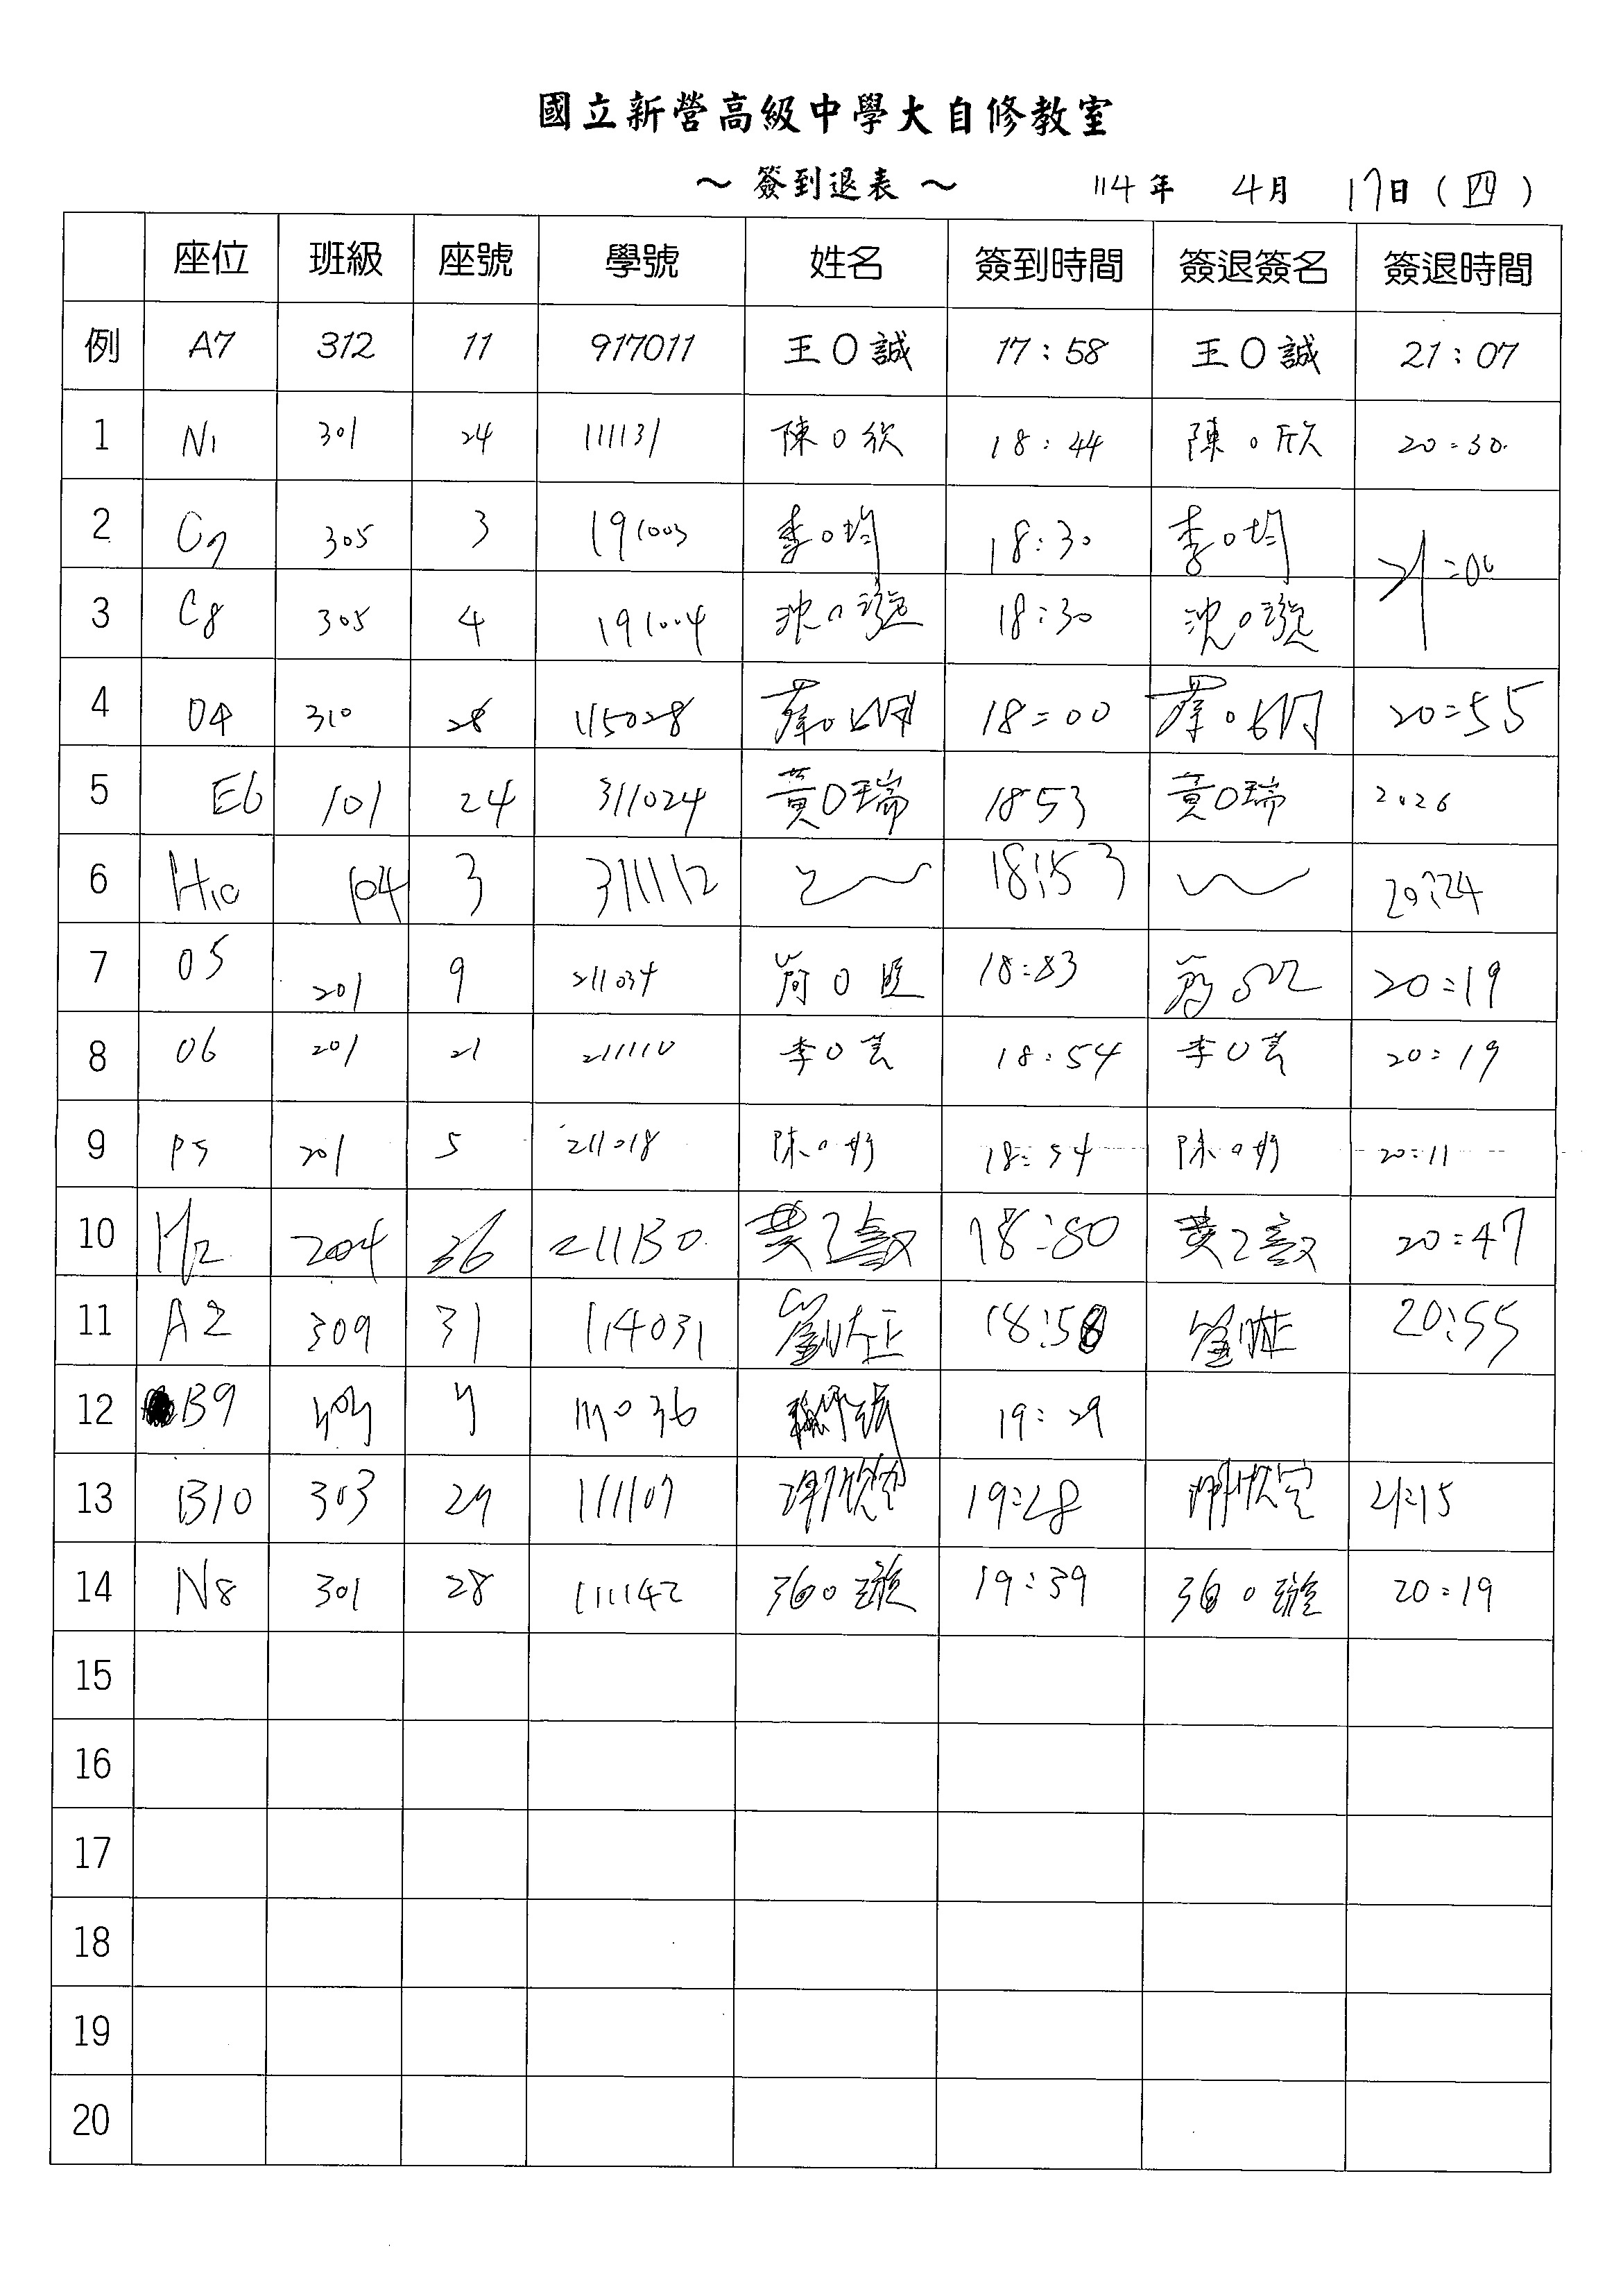 國立新營高級中學大自修教室
～ 簽到退表 ～ 114年 4月 17日(四)
座位 班級 座號 學號 姓名 簽到時間 簽退簽名 簽退時間
例 A7 312 11 917011 王O誠 17:58 王O誠 21:07
1 N1 301 24 111131 陳O欣 18:44 陳O欣 20:30
2 C7 305 3 191003 李O均 18:30 李O均 21:00
3 C8 305 4 191004 沈O璇 18:30 沈O璇
4 O4 310 28 115028 18:00 20:55
5 E6 101 24 311024 黃O瑞 1853 黃O瑞 2026
6 H10 104 3 311112 18:53 20:24
7 O5 201 9 211034 18:53 20:19
8 O6 201 21 211110 李O芸 18:54 李O芸 20:19
9 P5 201 5 211018 陳O妤 18:54 陳O妤 20:11
10 H2 204 36 211130 18:50 20:47
11 A2 309 31 114031 18:58 20:55
12 B9 19:29
13 B10 303 29 111107 19:28 21:15
14 N8 301 28 111142 19:39 20:19
15
16
17
18
19
20